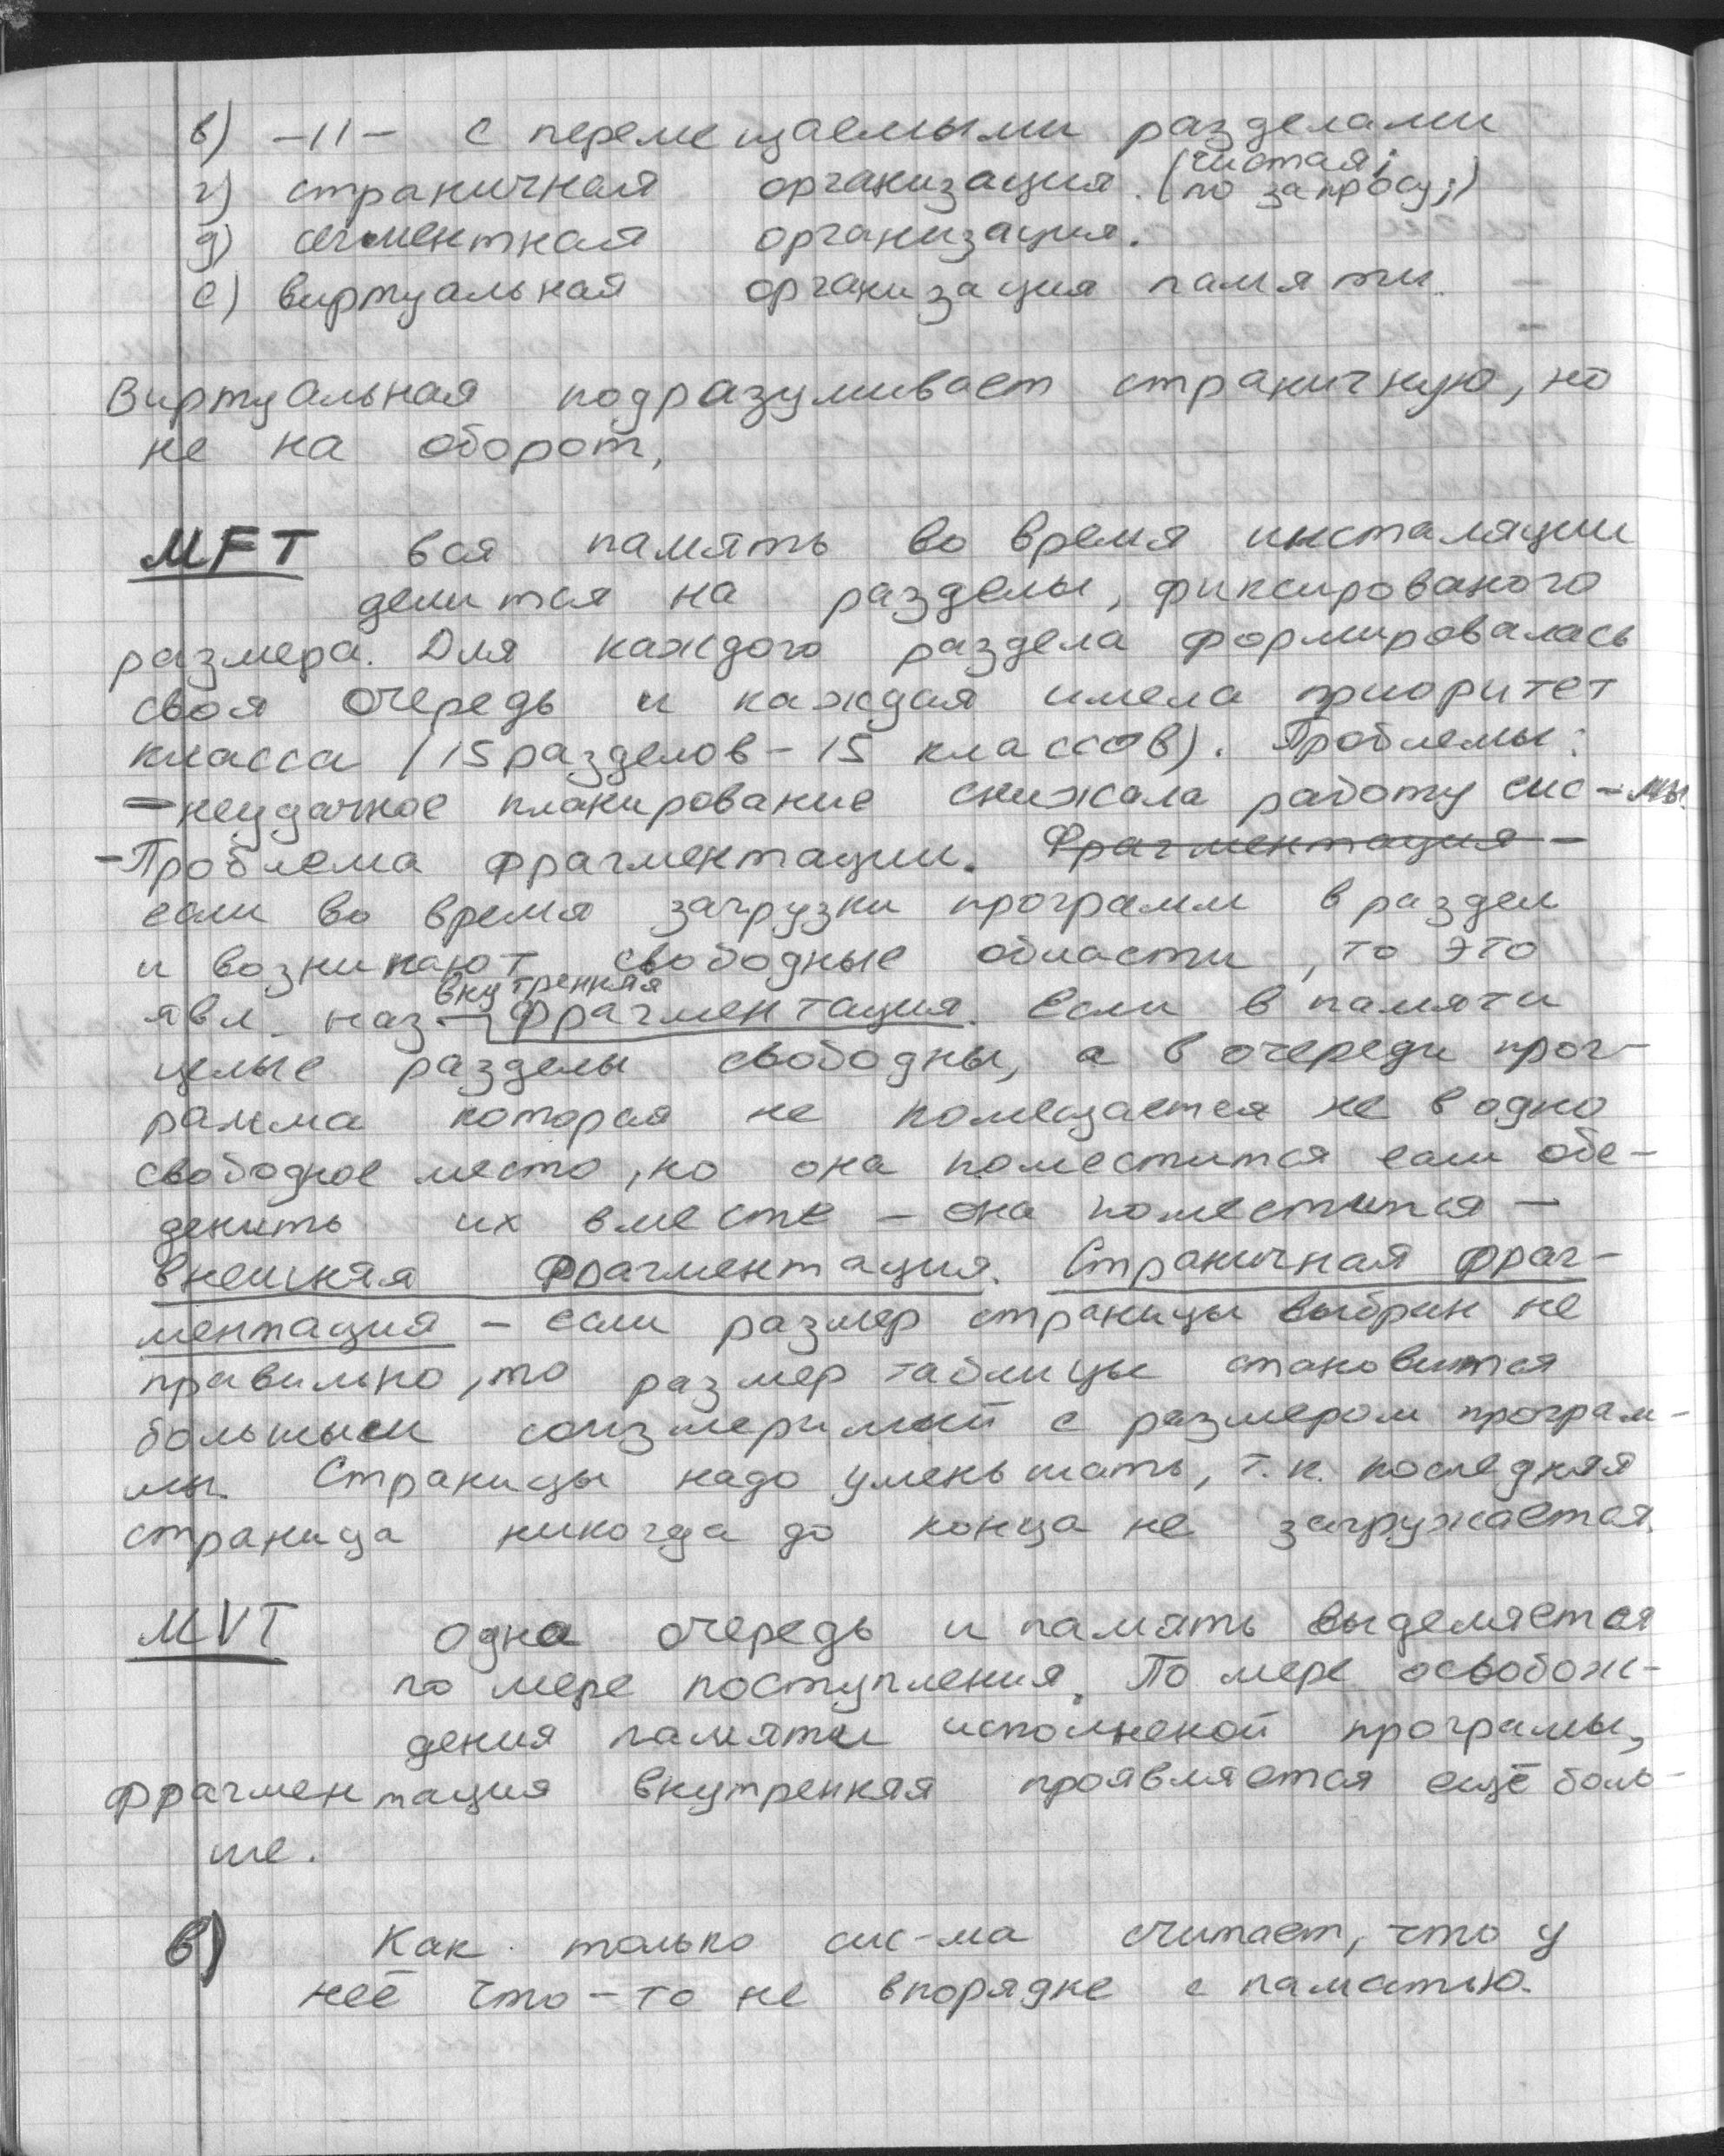 в) -11- с перемещаемыми разделами
г) страничная организация. (чистая; по запросу;)
д) сегментная организация.
е) виртуальная организация памяти.
Виртуальная подразумивает страничную, но
не на оборот,
MFT вся память во время инсталяции
делится на разделы, фиксированого
размера. Для каждого раздела формировалась
своя очередь и каждая имела приоритет
класса (15 разделов - 15 классов). Проблемы:
- неудачное планирование снижала работу сис-мы
- Проблема фрагментации. Фрагментация -
если во время загрузки программ в раздел
и возникают свободные области, то это
явл. наз. внутренняя фрагментация. Если в памяти
целые разделы свободны, а в очереди прог-
рамма которая не помещается не в одно
свободное место, но она поместится если обе-
денить их вместе - она поместится -
внешняя фрагментация. Страничная фраг-
ментация - если размер страницы выбран не
правильно, то размер таблицы становится
большым соизмеримый с размером програм-
мы. Страницы надо уменьшать, т.к. последняя
страница никогда до конца не загружается.
MVT одна очередь и память выделяется
по мере поступления. По мере освобож-
дения памяти исполненой програмы,
фрагментация внутренняя проявляется ещё боль-
ше.
в) Как только сис-ма считает, что у
неё что-то не впорядке с паматью.